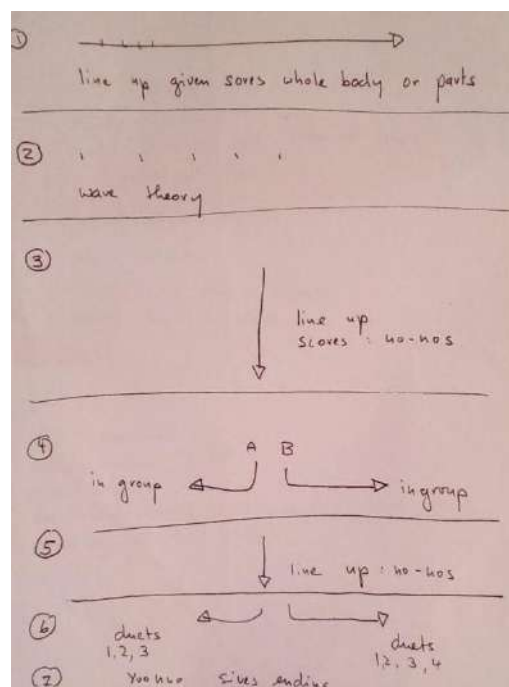 ①
line up given sores whole body or parts
②
wave theory
③
line up
scores : no-nos
④ A B
in group in group
⑤
line up : no-nos
⑥
duets duets
1, 2, 3 1, 2, 3, 4
⑦ gives ending